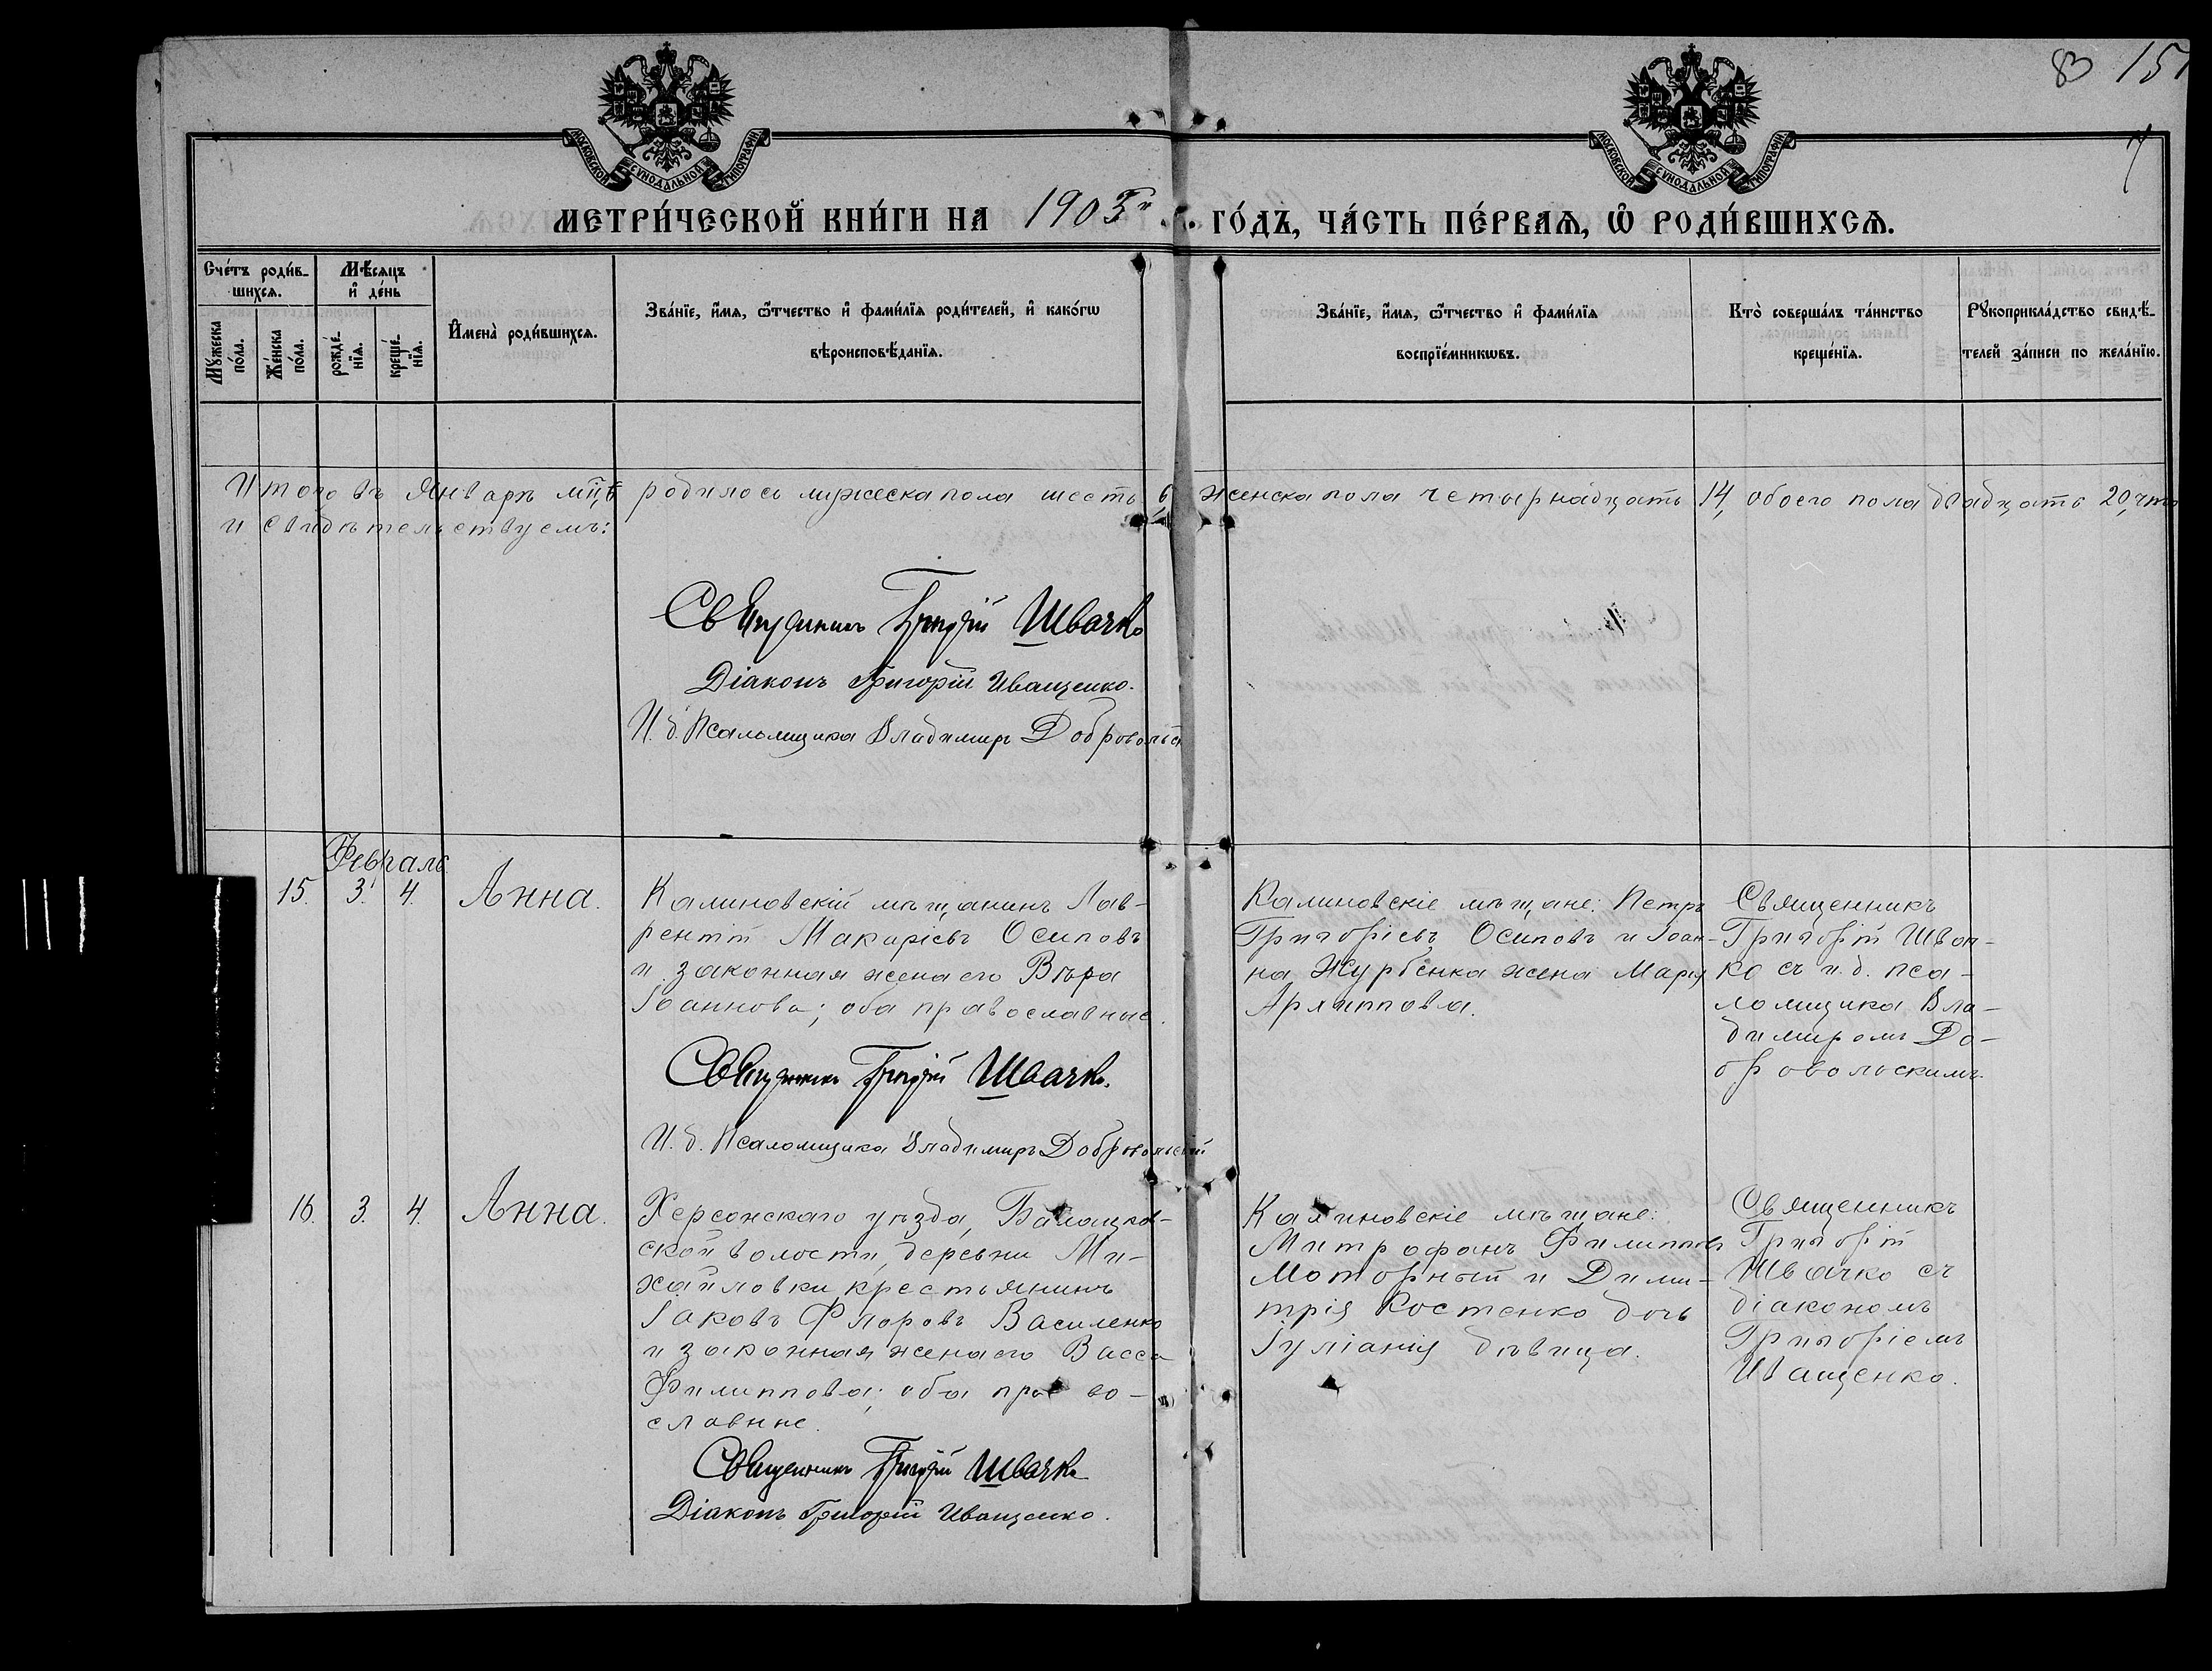 83 151
7
МОСКОВСКОЙ СѴНОДАЛЬНОЙ ТИПОГРАФІИ
МОСКОВСКОЙ СѴНОДАЛЬНОЙ ТИПОГРАФІИ
МЕТРИ́ЧЕСКОЙ КНИ́ГИ НА 1903й г. ГО́ДЪ, ЧА́СТЬ ПЕ́РВАѦ, Ѡ҆ РОДИ́ВШИХСѦ.
Сче́тъ роди́в-
шихсѧ.
Мꙋ́жеска по́ла.
Же́нска по́ла.
Мѣ́сѧцъ
и҆ де́нь
рожде́-нїѧ.
креще́-нїѧ.
И҆мена̀ роди́вшихсѧ.
Зва́нїе, и҆́мѧ, ѻ҆́тчество и҆ фами́лїѧ роди́телей, и҆ како́гѡ
вѣроисповѣ́данїѧ.
Зва́нїе, и҆́мѧ, ѻ҆́тчество и҆ фами́лїѧ
воспрїе́мникѡвъ.
Кто̀ соверша́лъ та́инство
креще́нїѧ.
Рꙋкоприкла́дство свидѣ́-
телей за́писи по жела́нїю.
Итого въ Январѣ мцѣ родилось мужеска пола шесть 6, женска пола четырнадцать 14, обоего пола двадцать 20, что
и свидѣтельствуемъ:
Священникъ Григорій Швачко
Діаконъ Григорій Иващенко.
И. д. Псаломщика Владимиръ Добровольск
Февраль.
15. 3. 4. Анна.
Калиновскій мѣщанинъ Лав-
рентій Макаріевъ Осиповъ
и законная жена его Вѣра
Іоаннова; оба православные.
Священникъ Григорій Швачко.
И. д. Псаломщика Владимиръ Добровольскій
Калиновскіе мѣщане: Петръ
Григоріевъ Осиповъ и Іоан-
на Журбенка жена Марія
Архиппова.
Священникъ
Григорій Швач-
ко съ и. д. пса-
ломщика Вла-
димиромъ До-
бровольскимъ.
16. 3. 4. Анна.
Херсонскаго уѣзда,
ской волости, деревни Ми-
хайловки крестьянинъ
Іаковъ Флоровъ Василенко
и законная жена его Васса
Филиппова; оба право-
славные.
Священникъ Григорій Швачко
Діаконъ Григорій Иващенко.
Калиновскіе мѣщане:
Митрофанъ Филипповъ
Моторный и Дими-
трія Костенко дочь
Іуліанія дѣвица.
Священникъ
Григорій
Швачко съ
діакономъ
Григоріемъ
Иващенко.